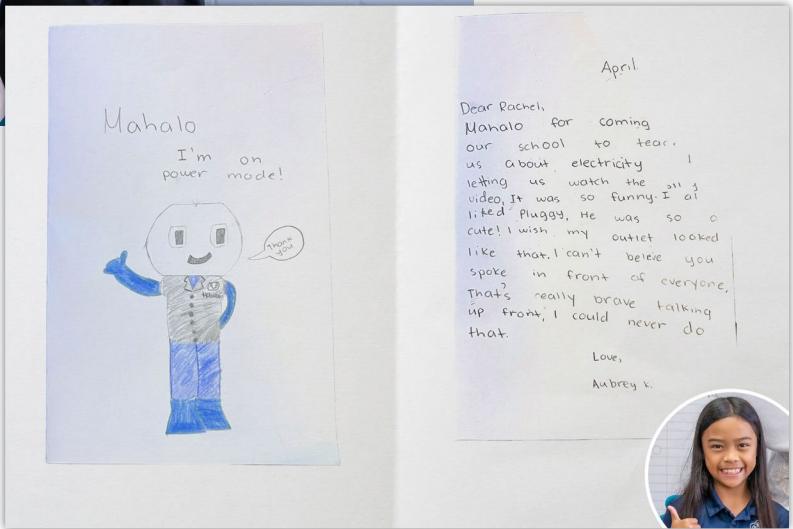 Mahalo
I'm on
power mode!
Thank
you
April
Dear Rachel,
Mahalo for coming
our school to
us about electricity
letting us watch the
video. It was so funny. I
liked Pluggy, He was so
cute! I wish my outlet looked
like that. I can't beleive you
spoke in front of everyone,
That's really brave talking
up front, I could never do
that.
Love,
Aubrey K.